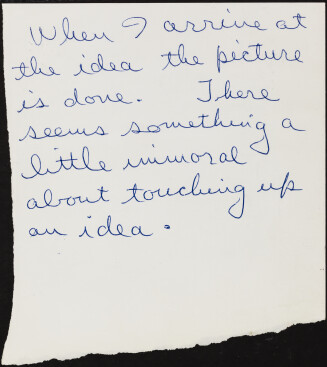 When I arrive at
the idea the picture
is done. There
seems something a
little immoral
about touching up
an idea.